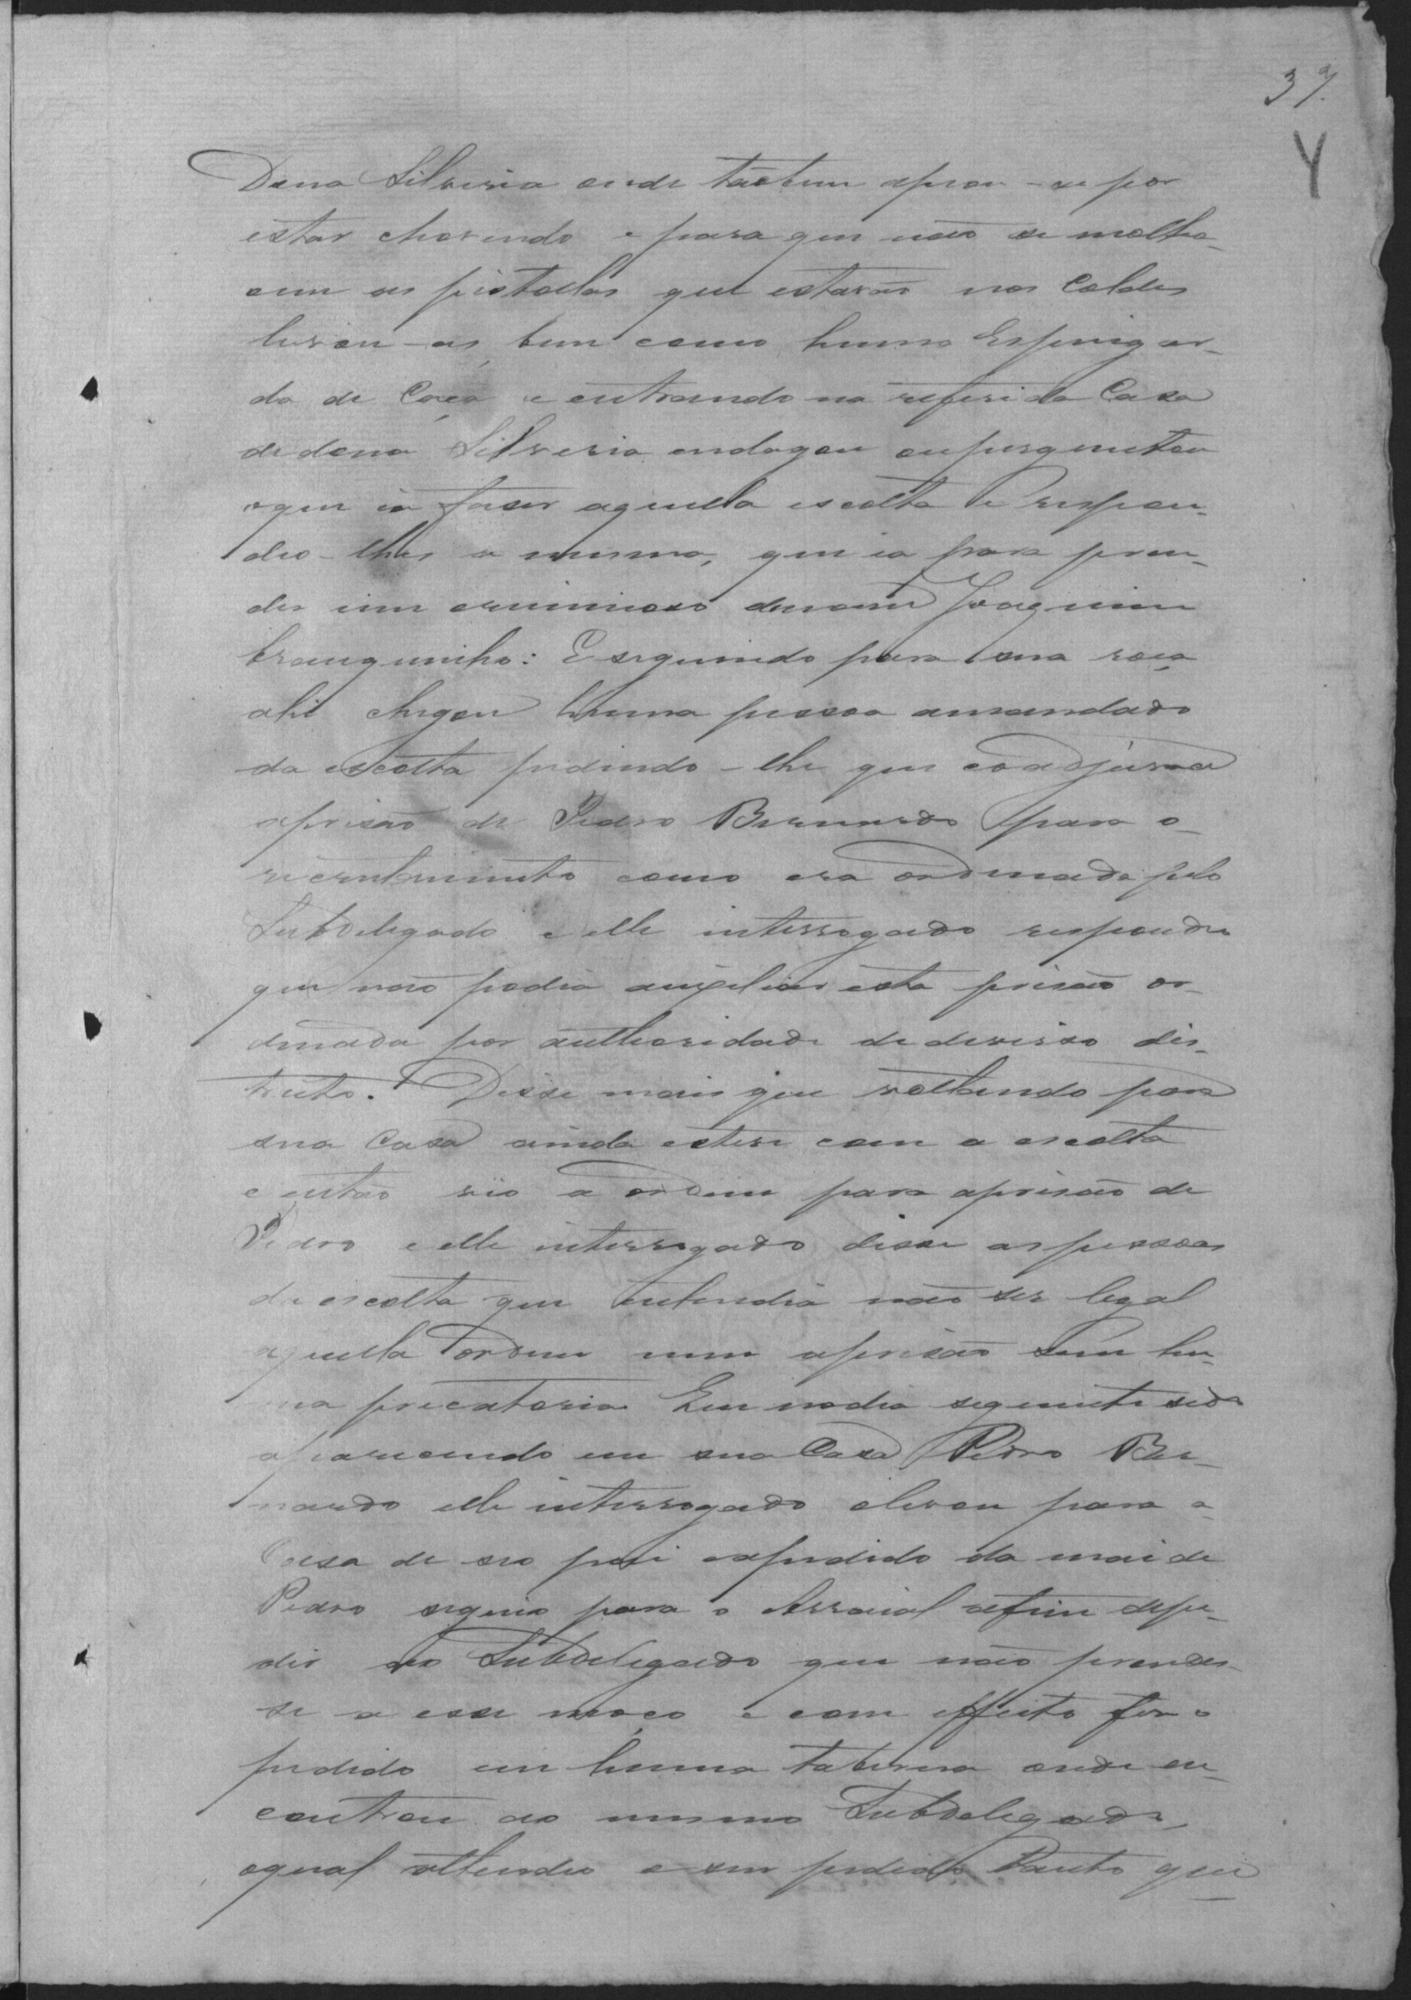 37.
Y
Dona Silveria onde tãobem apeou-se por
estar chovendo e para que não se molha-
cem as pistollas que estavão nos Coldes
levou-as, bem como huma Espingar-
da de Caça e entrando na referida Casa
de dona Silveria endagou ou perguntou
oque ia fazer aquella escolta e respon-
deo-lhes a mesma, que ia para pren-
der um criminoso de nome Joaquim
branquinho: E seguindo para sua roça
ahi chegou huma pessoa amandado
da escolta pedindo-lhe que coadjuvace
aprisão de Pedro Bernardo para o
recrutamento como era ordenado pelo
Subdelegado e elle interrogado respondeu
que não podia auxiliar esta prisão or-
denada por authoridade de diverso dis-
tricto. Disse mais que voltando para
sua Casa ainda esteve com a escolta
e então vio a ordem para aprisão de
Pedro e elle interrogado disse as pessoas
da escolta que entendia não ser legal
aquella ordem nem aprisão sem hu-
ma precatoria Em nodia seguinte
aparecendo em sua Casa Pedro Ber-
nardo elle interrogado olevou para a
Casa de seo pai eapedido da mai de
Pedro seguio para o Arraial afim depe-
dir ao Subdelegado que não prendes-
se a esse moço e com effeito fes o
pedido em huma taberna onde en-
controu ao mesmo Subdelegado,
oqual attendeo a seu pedido tanto que